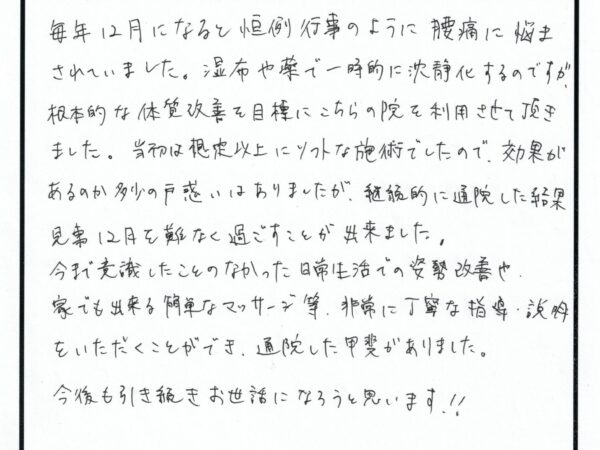 毎年12月になると恒例行事のように腰痛に悩ま
されていました。湿布や薬で一時的に沈静化するのですが、
根本的な体質改善を目標にこちらの院を利用させて頂き
ました。当初は想定以上にソフトな施術でしたので、効果が
あるのか多少の戸惑いはありましたが、継続的に通院した結果
見事12月を難なく過ごすことが出来ました。
今まで意識したことのなかった日常生活での姿勢改善や、
家でも出来る簡単なマッサージ等、非常に丁寧な指導・説明
をいただくことができ、通院した甲斐がありました。
今後も引き続きお世話になろうと思います!!